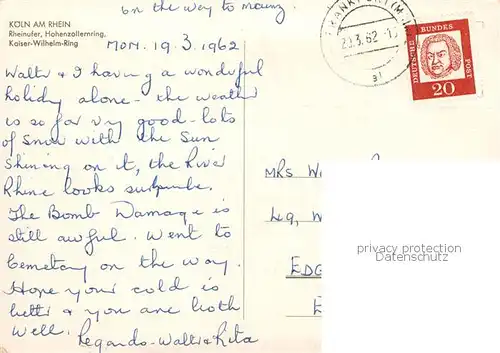 on the way to mainz.
KÖLN AM RHEIN
Rheinufer, Hohenzollernring,
Kaiser-Wilhelm-Ring
MON. 19.3.1962
Walter & I having a wonderful
holiday alone - the weather
is so far vry good - lots
of snow with the sun
shining on it, the River
Rhine looks superbe.
The Bomb Damage is
still awful. Went to
Cemetary on the way.
Hope your cold is
better & you are both
well.
Regards - Walter & Rita
FRANKFURT (M
20.3.62
DEUTSCHE BUNDES POST
20
MRS W
49, W
EDG
E
privacy protection
Datenschutz